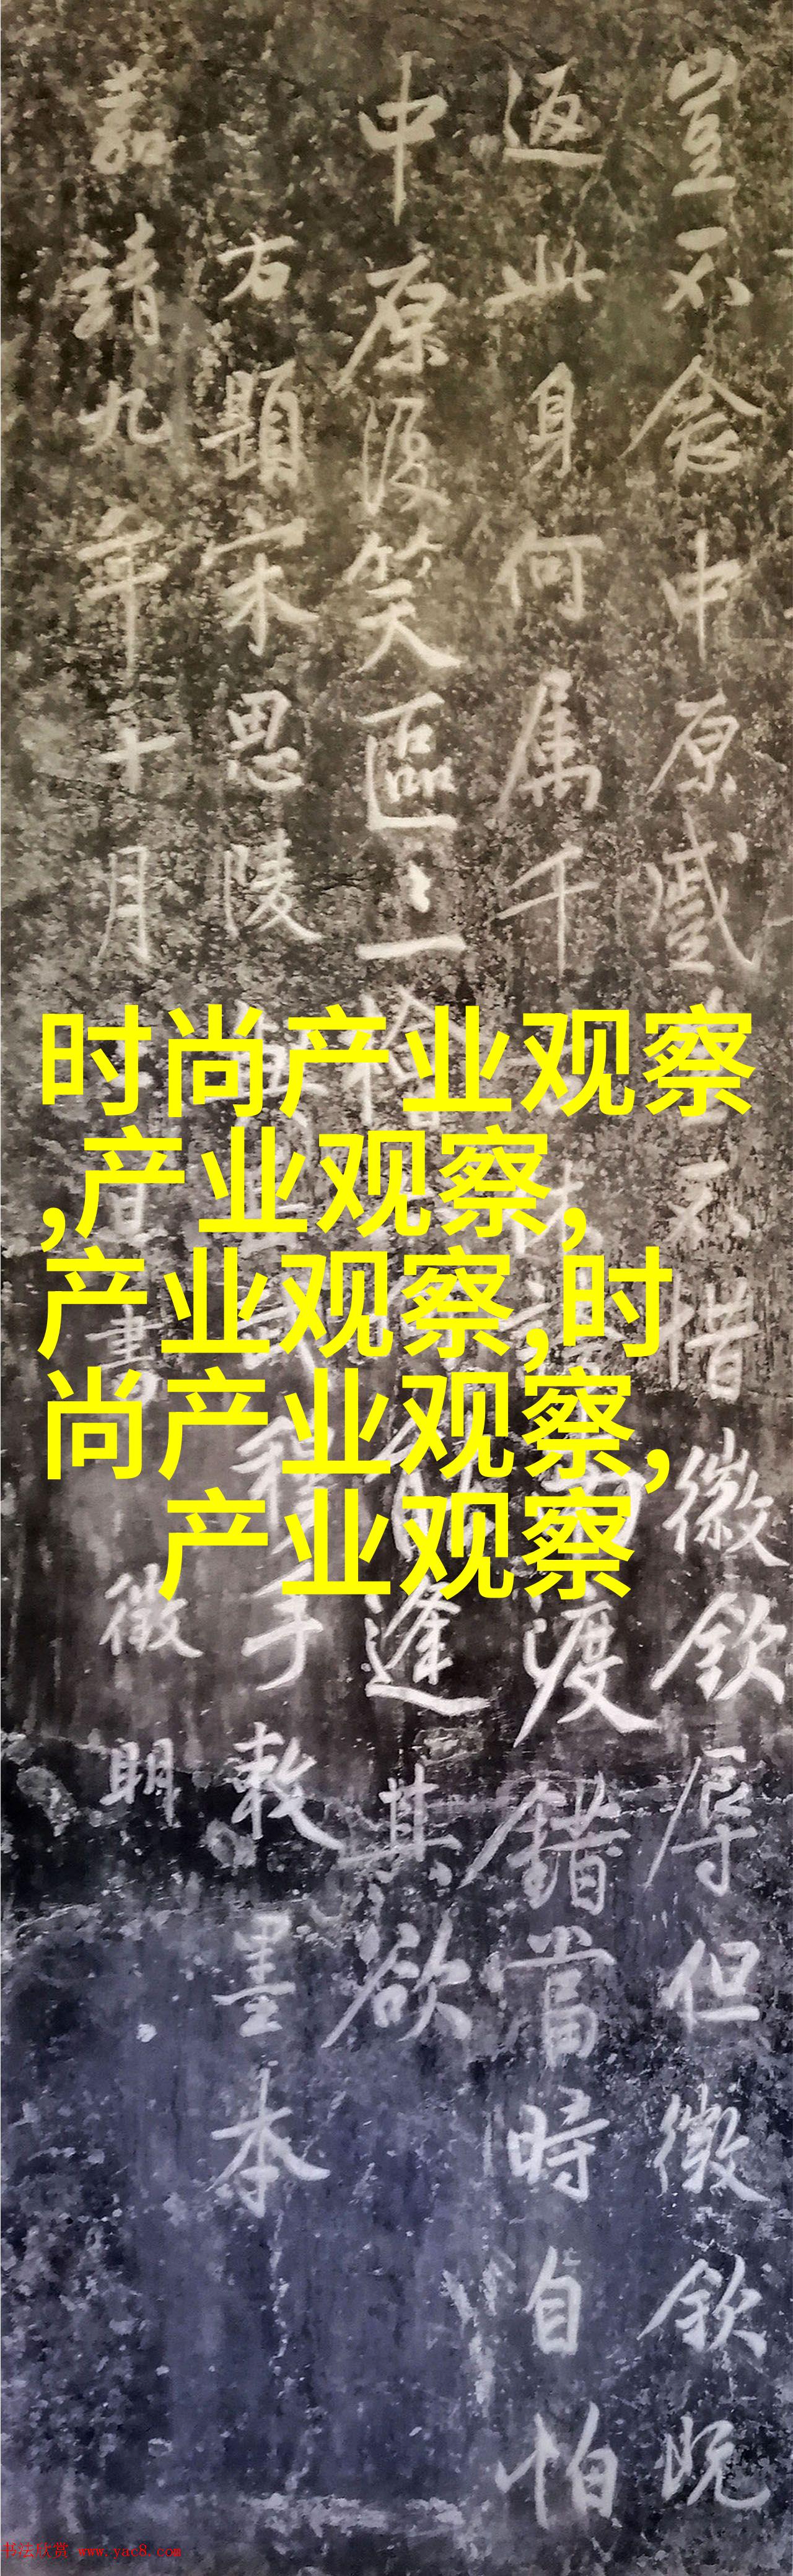 豈不念中原蹙不惜徽欽辱但徽欽既
返此身何属千南渡錯當時自怕
中原復笑區〻一檜逢其欲
右題宋思陵穆手敕墨本
嘉靖九年十月日書徵明
时尚产业观察
,产业观察,
产业观察,时
尚产业观察,
产业观察
书法欣赏 www.yac8.com